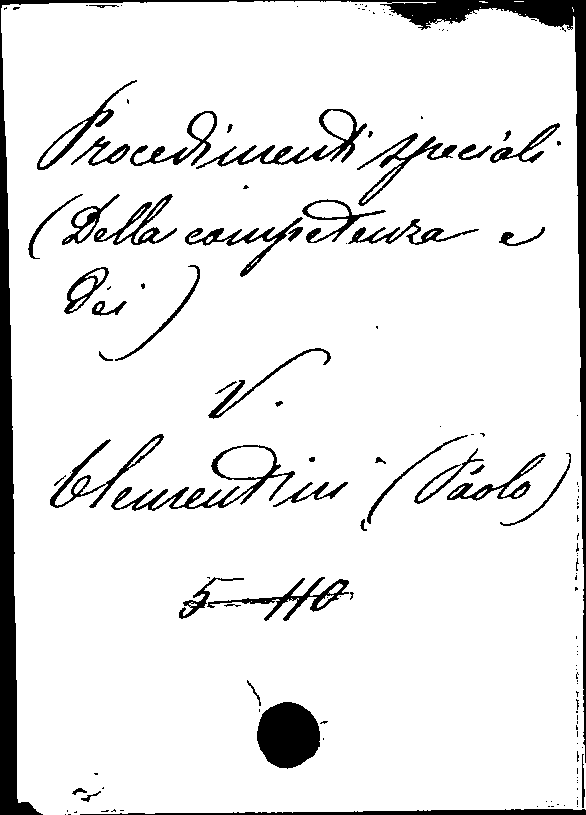 Procedimenti speciali
(Della competenza e
dei)
V.
Clementini (Paolo)
5-110